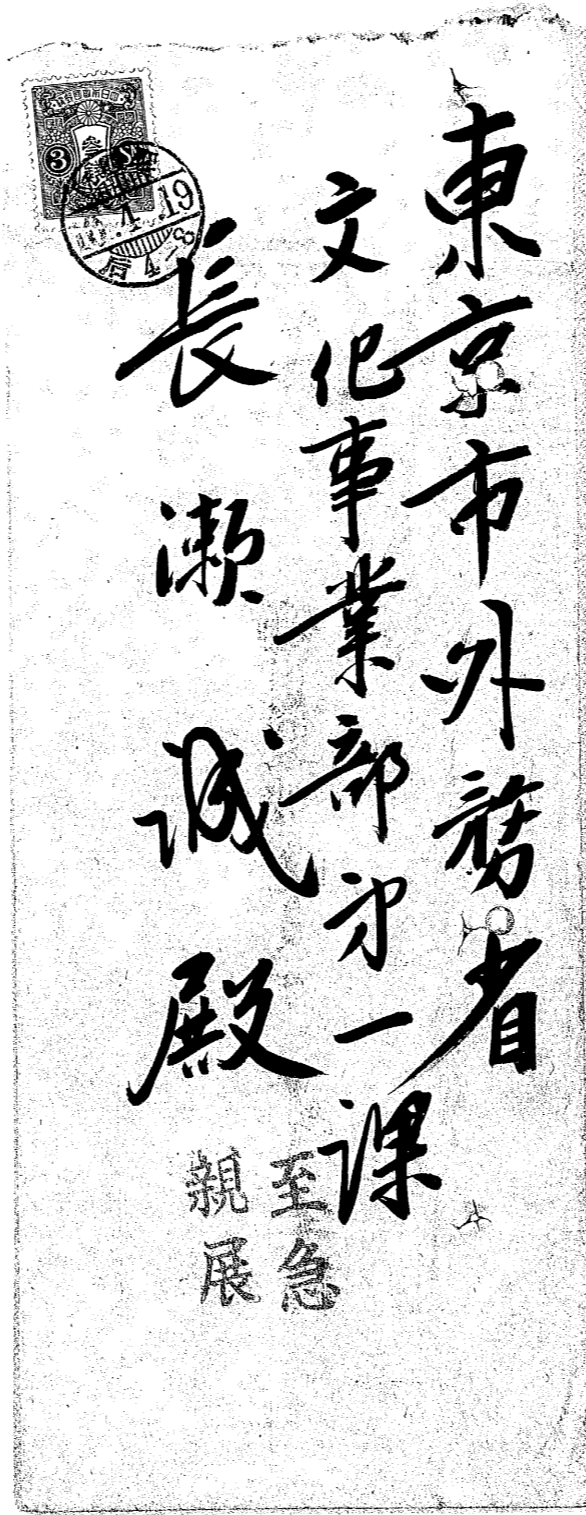 東京市外務省
文化事業部第一課
長瀬誠殿
至急
親展
3
1.19
后4-8